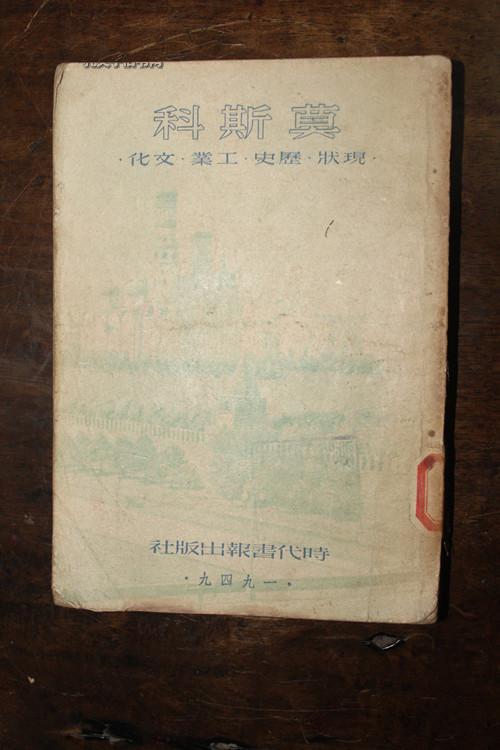 莫斯科
·現狀·歷史·工業·文化·
時代書報出版社
·一九四九·